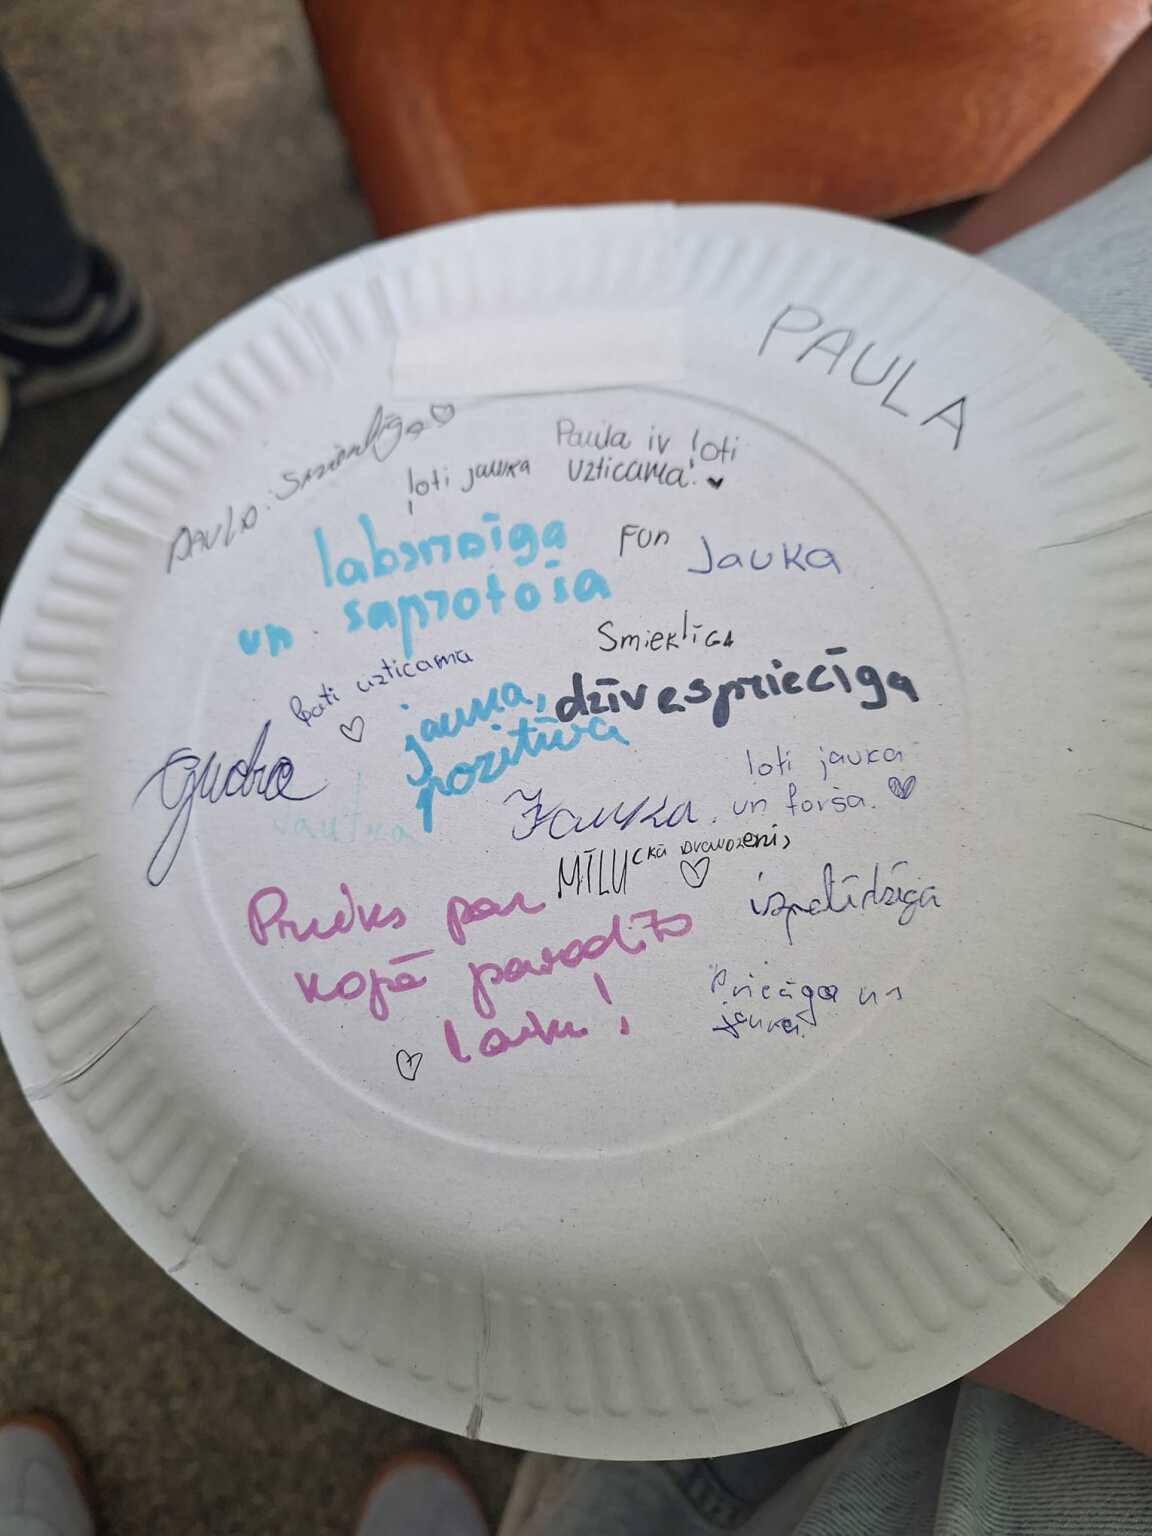 PAULA
PAULA: Smieklīga
ļoti jauka
Paula ir ļoti
uzticama!
labsirdīga
un saprotoša
FUN
Jauka
SmieklīGA
ļoti uzticama
jauka,
pozitīva
dzīvespriecīga
gudra
Jautra
Jauka
ļoti jauka
un forša.
MĪLU
Prieks par
kopā pavadīto
laiku!
izpalīdzīga
Priecīga un
jauka.